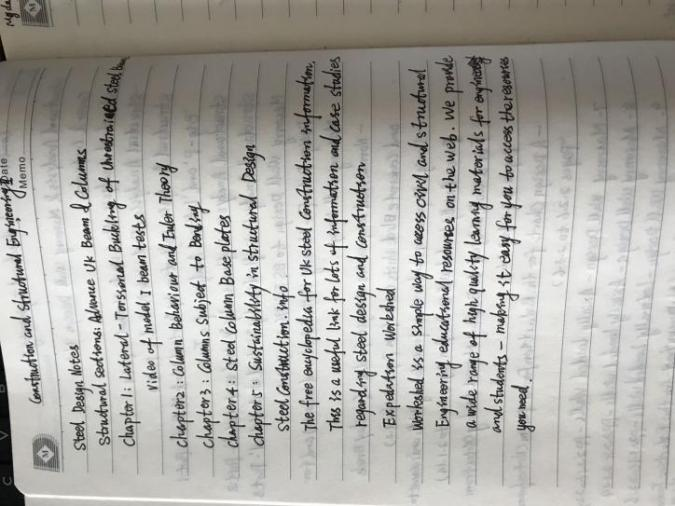 Construction and Structural Engineering
Date
Memo
Steel Design Notes
Structural Sections: Advance UK Beam & Columns
Chapter 1: Lateral-Torsional Buckling of Unrestrained steel
Video of model I beam tests
Chapter 2: Column Behaviour and Euler Theory
Chapter 3: Columns Subject to Bending
Chapter 4: Steel Column Base plates
Chapter 5: Sustainability in structural Design
Steel Construction.info
The free encyclopedia for UK steel construction information.
This is a useful link for lots of information and case studies
regarding steel design and construction
Expedition Workshed
Workshed is a simple way to access civil and structural
Engineering educational resources on the web. We provide
a wide range of high quality learning materials for engineering
and students - making it easy for you to access the resources
you need.